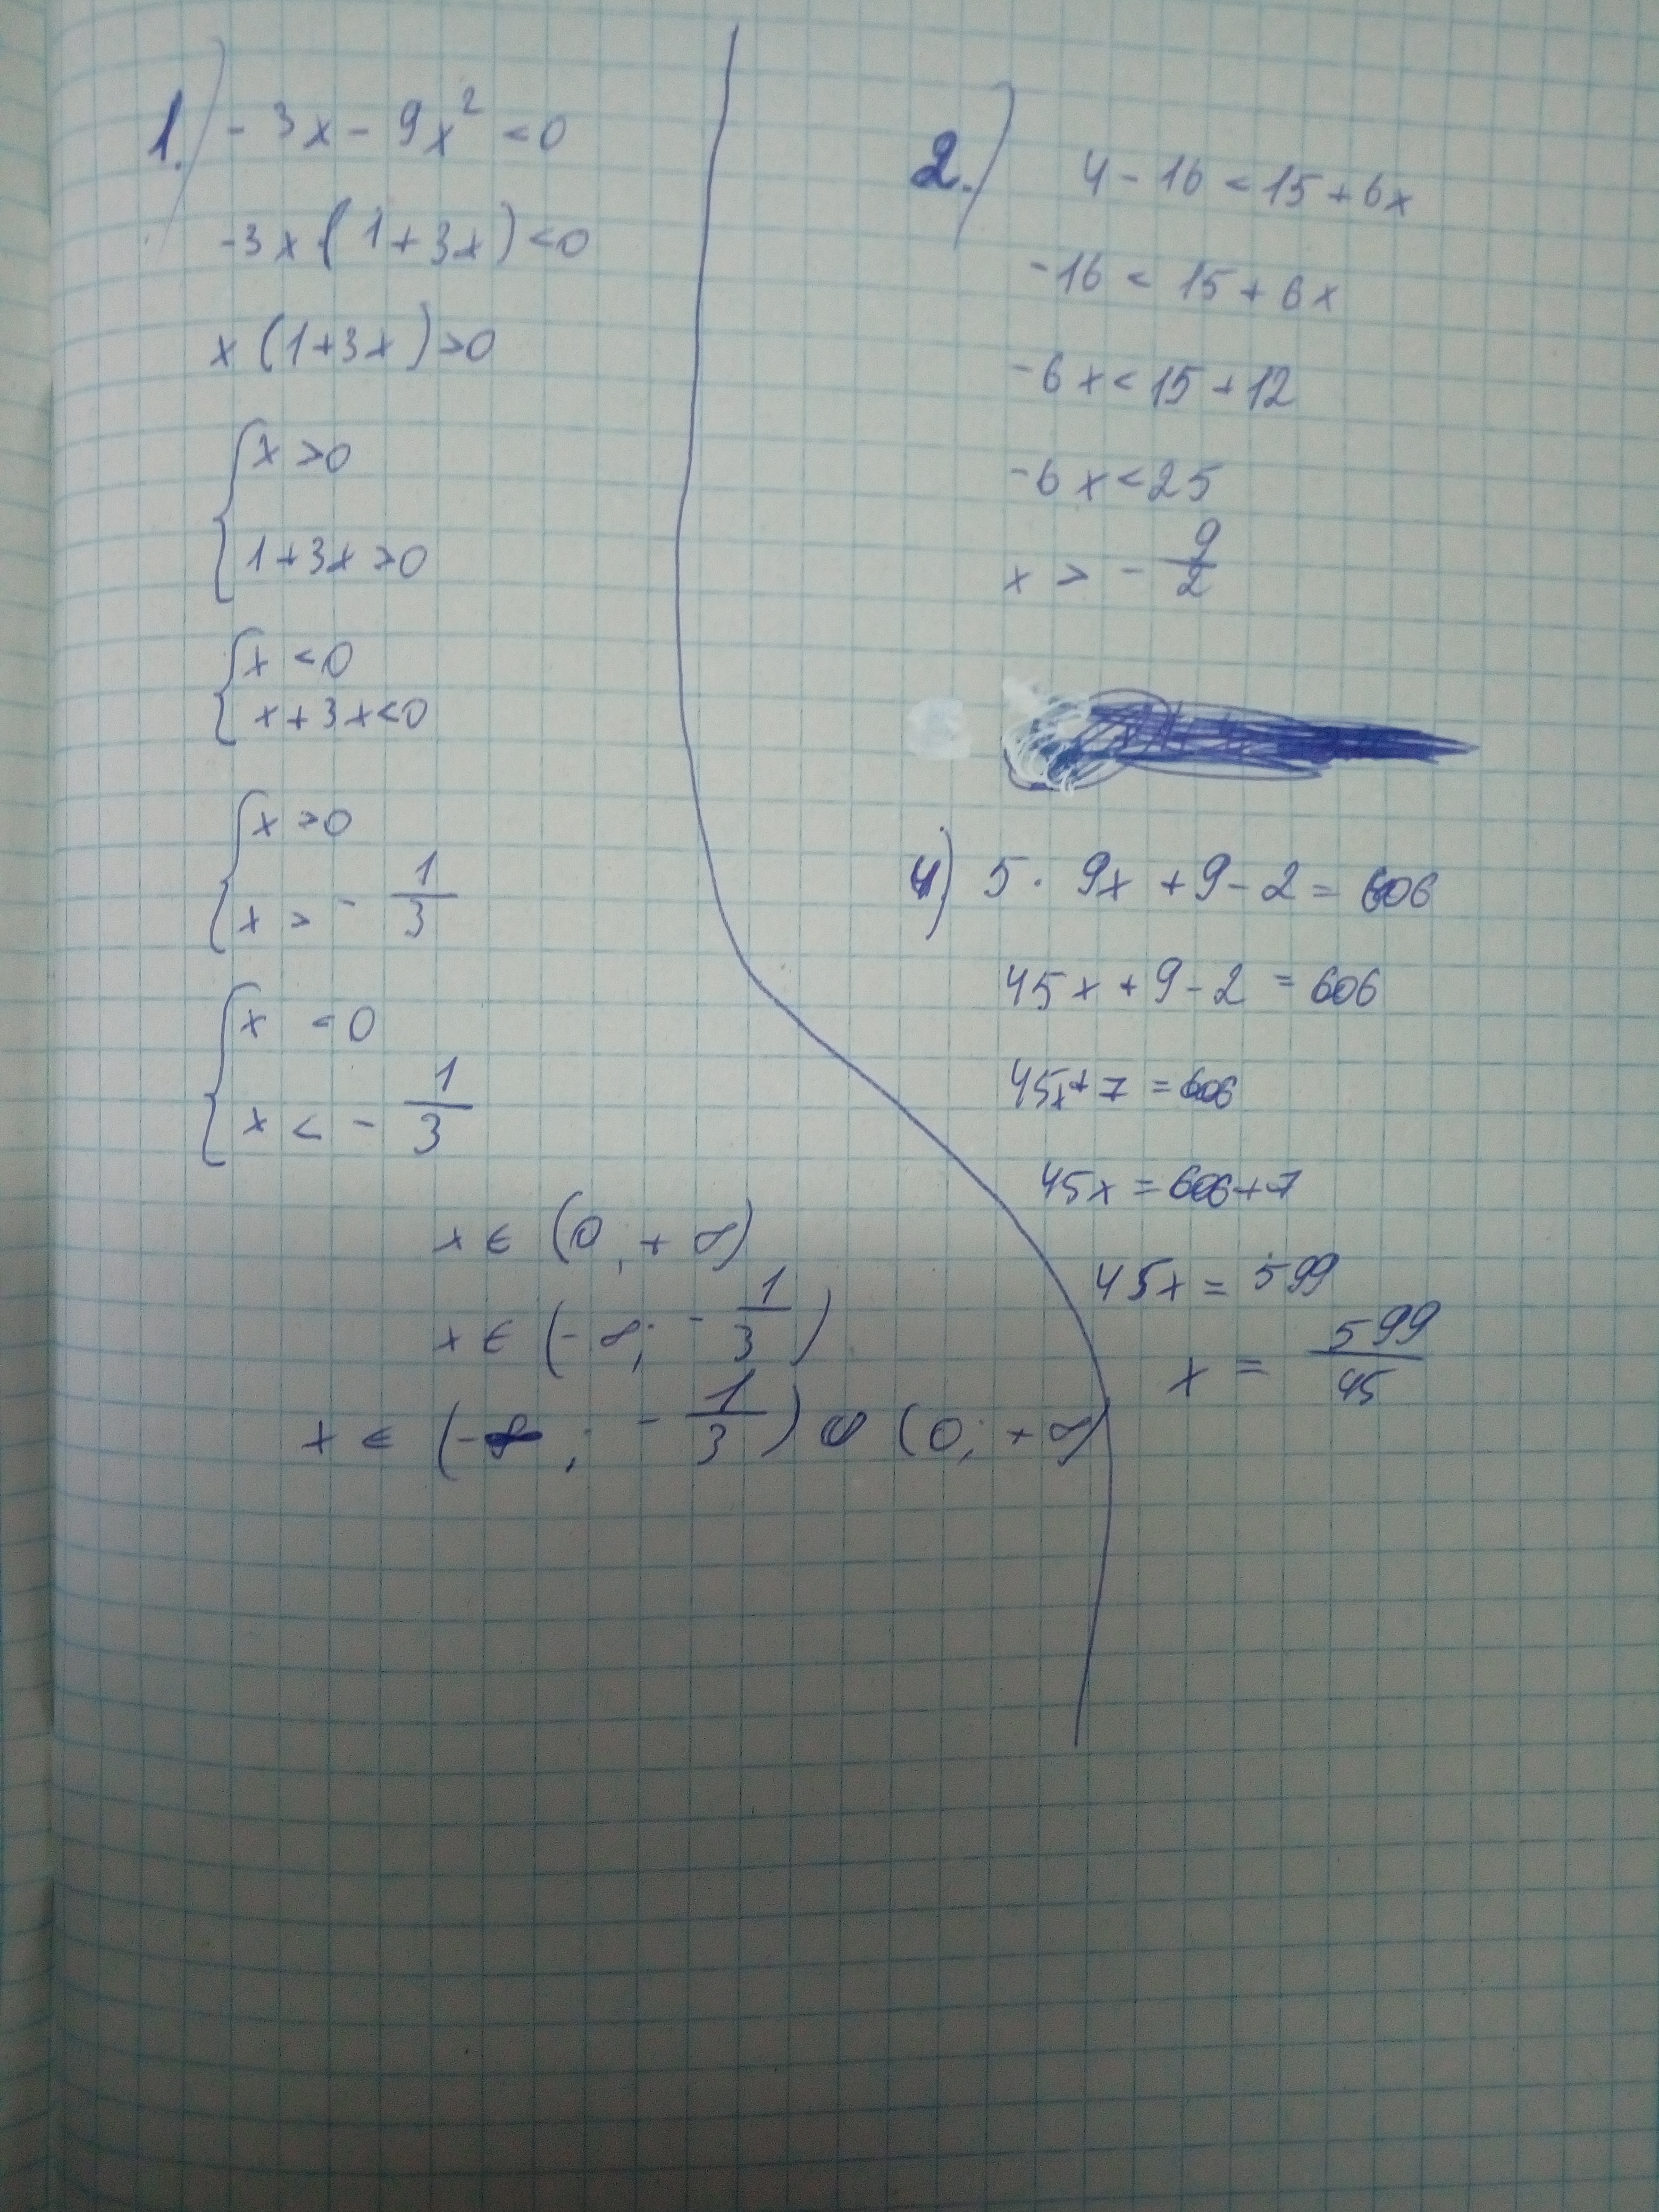 1.) - 3x - 9x² < 0
-3x (1 + 3x) < 0
x (1 + 3x) > 0
{ x > 0
1 + 3x > 0
{ x < 0
x + 3x < 0
{ x > 0
x > - 1/3
{ x < 0
x < - 1/3
x ∈ (0; + ∞)
x ∈ (- ∞; - 1/3)
x ∈ (-∞; - 1/3) ∪ (0; + ∞)
2.) 4 - 16 < 15 + 6x
-16 < 15 + 6x
-6x < 15 + 12
-6x < 25
x > - 9/2
4) 5 · 9x + 9 - 2 = 606
45x + 9 - 2 = 606
45x + 7 = 606
45x = 606 + 7
45x = 599
x = 599/45